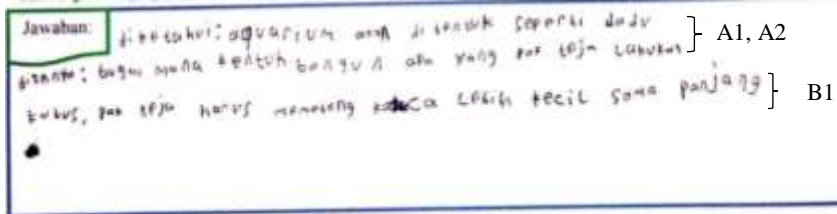 Jawaban:
diketahui: aquarium akan di bentuk seperti dadu } A1, A2
ditanya: bagai mana bentuk bangun apa yang pak teja lakukan
kubus, pak teja harus memotong kaca lebih kecil sama panjang } B1